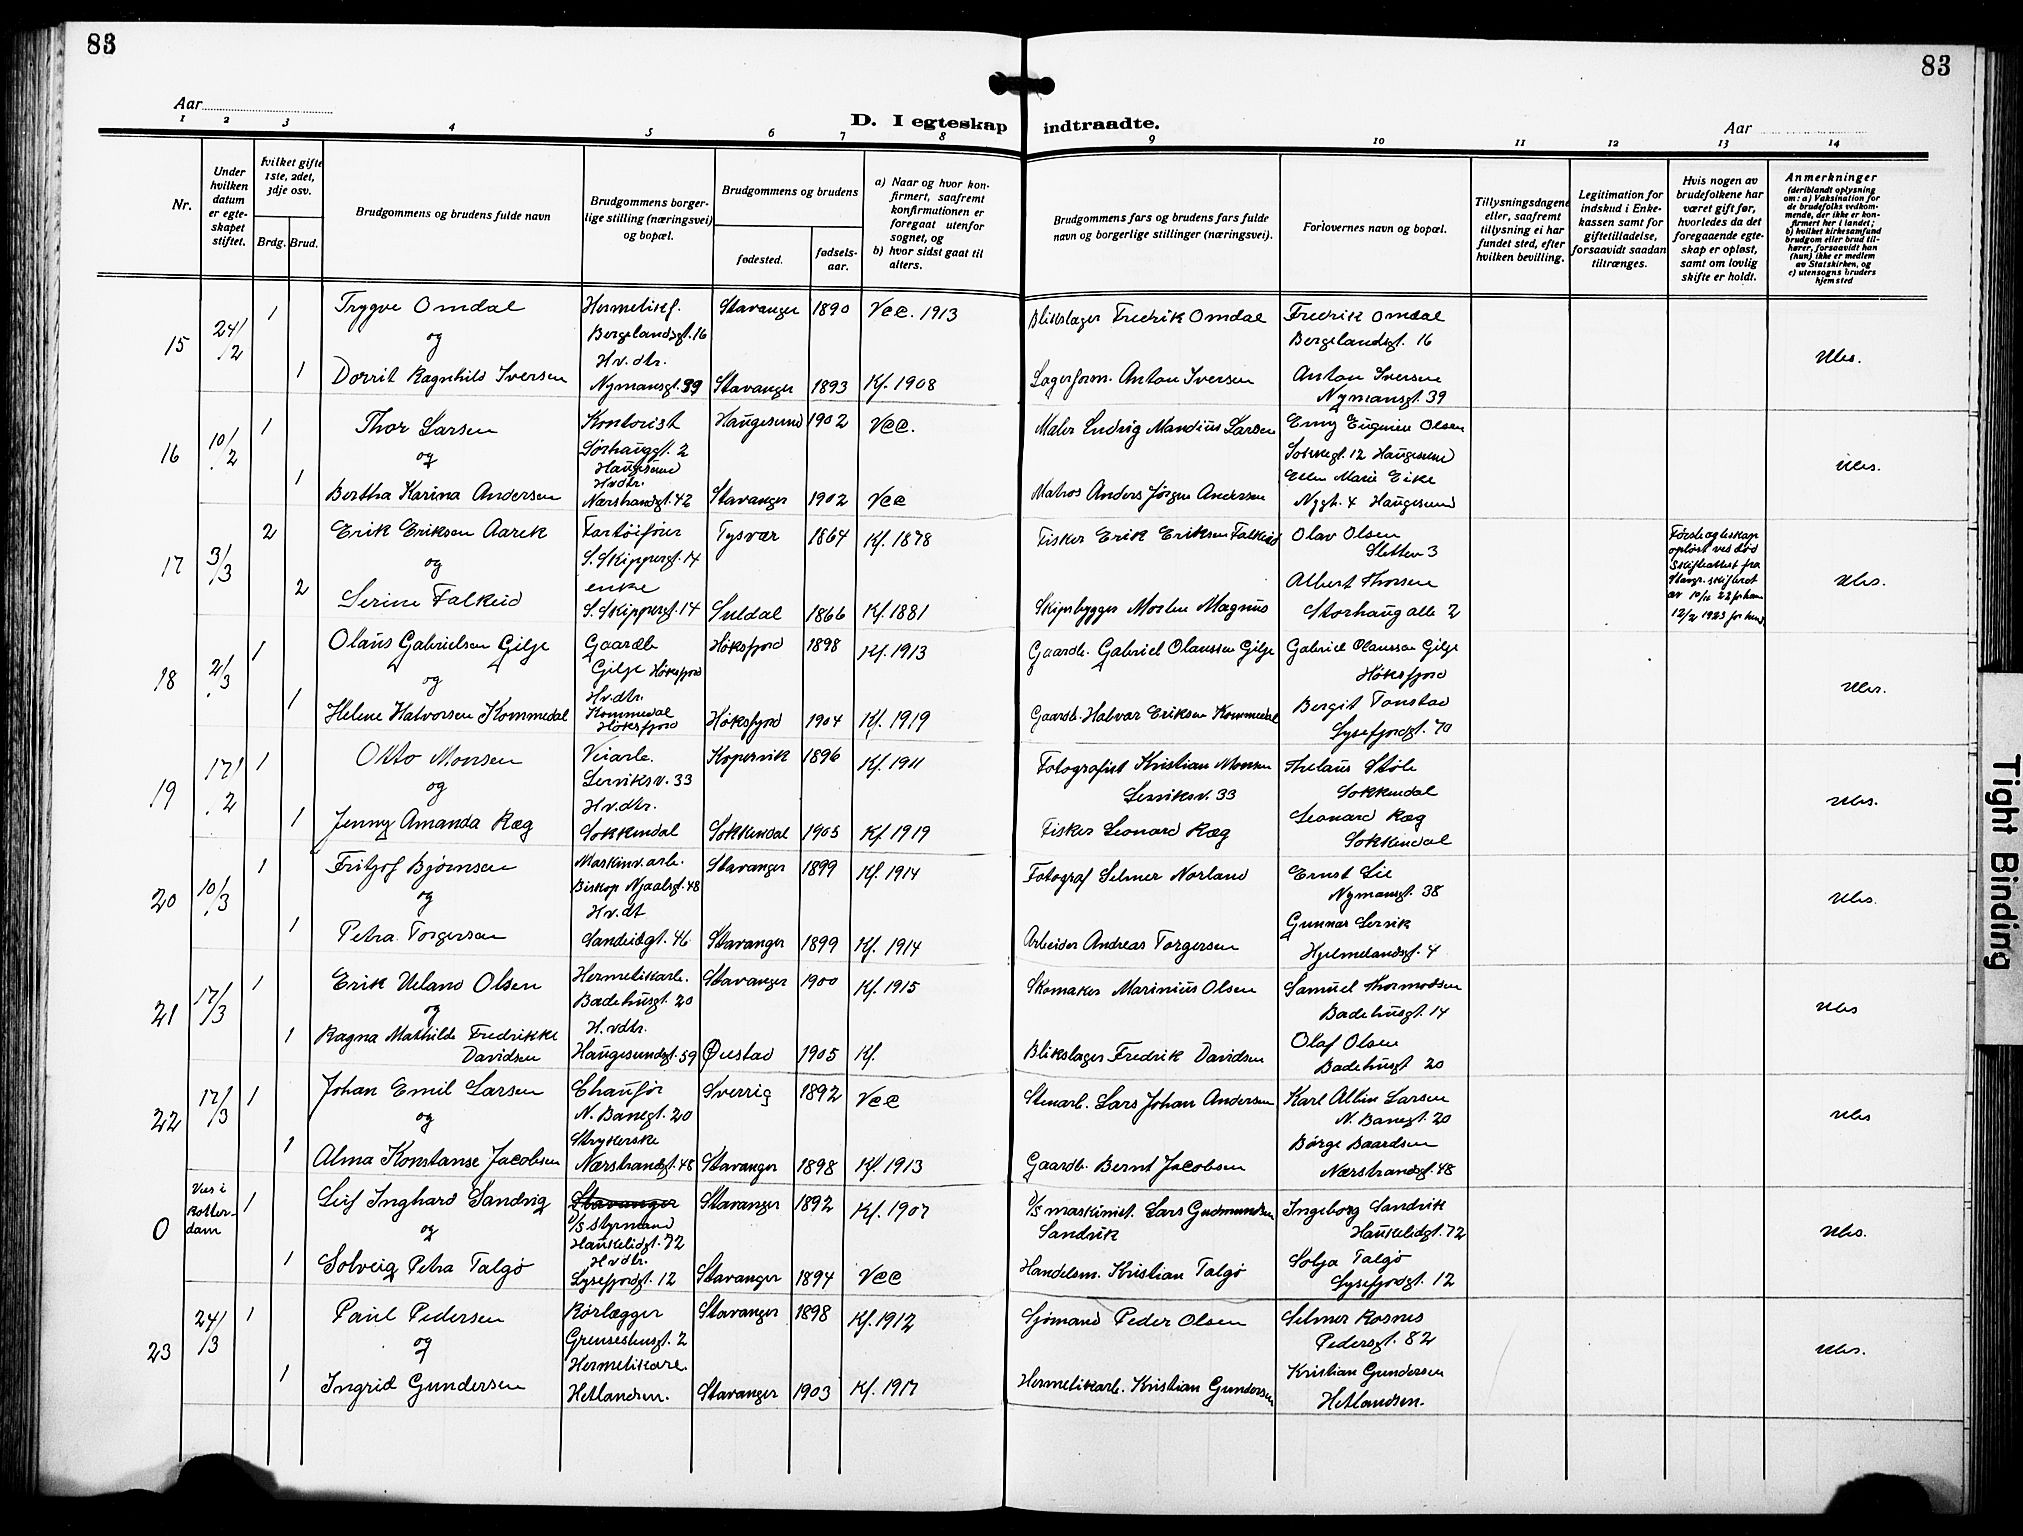 83
83
Aar
D. I egteskap indtraadte.
Aar
1 2 3 4 5 6 7 8 9 10 11 12 13 14
Nr.
Under hvilken datum er egte-skapet stiftet.
hvilket gifte 1ste, 2det, 3dje osv.
Brdg. Brud.
Brudgommens og brudens fulde navn
Brudgommens borger-lige stilling (næringsvei) og bopæl.
Brudgommens og brudens
fødested.
fødsels-aar.
a) Naar og hvor kon-firmert, saafremt konfirmationen er foregaat utenfor sognet, og
b) hvor sidst gaat til alters.
Brudgommens fars og brudens fars fulde navn og borgerlige stillinger (næringsvei).
Forlovernes navn og bopæl.
Tillysningsdagene eller, saafremt tillysning ei har fundet sted, efter hvilken bevilling.
Legitimation for indskud i Enke-kassen samt for giftetilladelse, forsaavidt saadan tiltrænges.
Hvis nogen av brudefolkene har været gift før, hvorledes da det foregaaende egte-skap er opløst, samt om lovlig skifte er holdt.
Anmerkninger
(deriblandt oplysning om: a) Vaksination for de brudefolks vedkom-mende, der ikke er kon-firmert her i landet; b) hvilket kirkesamfund brudgom eller brud til-hører, forsaavidt han (hun) ikke er medlem av Statskirken, og c) utensogns bruders hjemsted
15 24/2 1 Trygve Omdal Hermetikf. Bergelandsgt. 16 Stavanger 1890 Vcc. 1913 Blikslager Fredrik Omdal Fredrik Omdal Bergelandsgt. 16
og
1 Dorrit Ragnhild Iversen Hv. dtr. Nymansgt. 39 Stavanger 1893 Kf. 1908 Lagerform. Anton Iversen Anton Iversen Nymansgt. 39
16 10/2 1 Thor Larsen Kontorist Sørhauggt. 2 Haugesund Haugesund 1902 Vcc. Maler Ludvig Mandius Larsen Enny Eugenie Olsen 12 Haugesund
og
1 Bertha Karina Andersen Hvdtr. Nærstrandgt. 42 Stavanger 1902 Vcc Matros Anders Jørgen Andersen Ellen Marie Eike Nygt. 4 Haugesund
17 3/3 2 Erik Eriksen Aarek Fartøifører S. Skippergt. 14 Tysvær 1864 Kf. 1878 Fisker Erik Eriksen Falkeid Olav Olsen Sletten 3
og
2 Serine Falkeid enke S. Skippergt. 14 Suldal 1866 Kf. 1881 Skipsbygger Mosten Magnus Albert Thorsen Storhaug alle 2
Første egteskap opløst ved død Skifteattest fra Stavgr. skifteret av 10/11 22 for ham 12/2 1923 for hend
18 2/3 1 Olaus Gabrielsen Gilje Gaardb. Gilje Høksfjord Høksfjord 1898 Kf. 1913 Gaardb. Gabriel Olaussen Gilje Gabriel Olaussen Gilje Høksfjord
og
1 Helene Halvorsen Kommedal Hv.dtr. Kommedal Høksfjord Høksfjord 1904 Kf. 1919 Gaardb. Halvar Eriksen Kommedal Bergit Tonstad Lysefjordgt. 70
19 17/2 1 Otto Monsen Veiarb. Lerviksv. 33 Kopervik 1896 Kf. 1911 Fotografist Kristian Monsen Lerviksv. 33 Thelaus Støle Sokkendal
og
1 Jenny Amanda Ræg Hv.dtr. Sokkendal Sokkendal 1905 Kf 1919 Fisker Leonard Ræg Leonard Ræg Sokkendal
20 10/3 1 Fritjof Bjørnsen Maskinv. arb. Biskop Njaalsgt. 48 Stavanger 1899 Kf. 1914 Fotograf Selmer Norland Ernst Lie Nymansgt. 38
og
1 Petra Torgersen Hv.dt Sandeidgt. 46 Stavanger 1899 Kf. 1914 Arbeider Andreas Torgersen Gunnar Lervik Hjelmelandsgt. 4
21 17/3 1 Erik Ueland Olsen Hermetikarb. Badehusgt. 20 Stavanger 1900 Kf. 1915 Skomaker Marinius Olsen Samuel Thormodsen Badehusgt. 14
og
1 Ragna Mathilde Fredrikke Davidsen H. vdtr. Haugesundsgt. 59 Ørestad 1905 Kf. Blikslager Fredrik Davidsen Olaf Olsen Badehusgt 20
22 17/3 1 Johan Emil Larsen Chaufør N. Banegt. 20 Sverrig 1892 Vcc Stenarb. Lars Johan Andersen Karl Albin Larsen N. Banegt. 20
og
1 Alma Konstanse Jacobsen Strykerske Nærstrandgt. 48 Stavanger 1898 Kf. 1913 Gaardb. Bernt Jacobsen Børge Baardsen Nærstrandgt. 48
0 Vies i Rotter-dam 1 Leif Inghard Sandvig Stavanger D/S styrmand Haukelidgt. 72 Stavanger 1892 Kf. 1907 D/S maskinist. Lars Gudmundsen Sandvik Ingeborg Sandvik Haukelidgt. 72
og
1 Solveig Petra Talgø Hvdtr. Lysefjordgt. 12 Stavanger 1894 Vcc Handelsm. Kristian Talgø Solja Talgø Lysefjordgt. 12
23 24/3 1 Paul Pedersen Rørlægger 2 Stavanger 1898 Kf. 1912 Sjømand Peder Olsen Selmer Rosnes Pedersgt. 82
og
1 Ingrid Gundersen Hermetikarb. Hetlandsm. Stavanger 1903 Kf. 1917 Hermetikarb. Kristian Gundersen Kristian Gundersen Hetlandsm.
Tight Binding